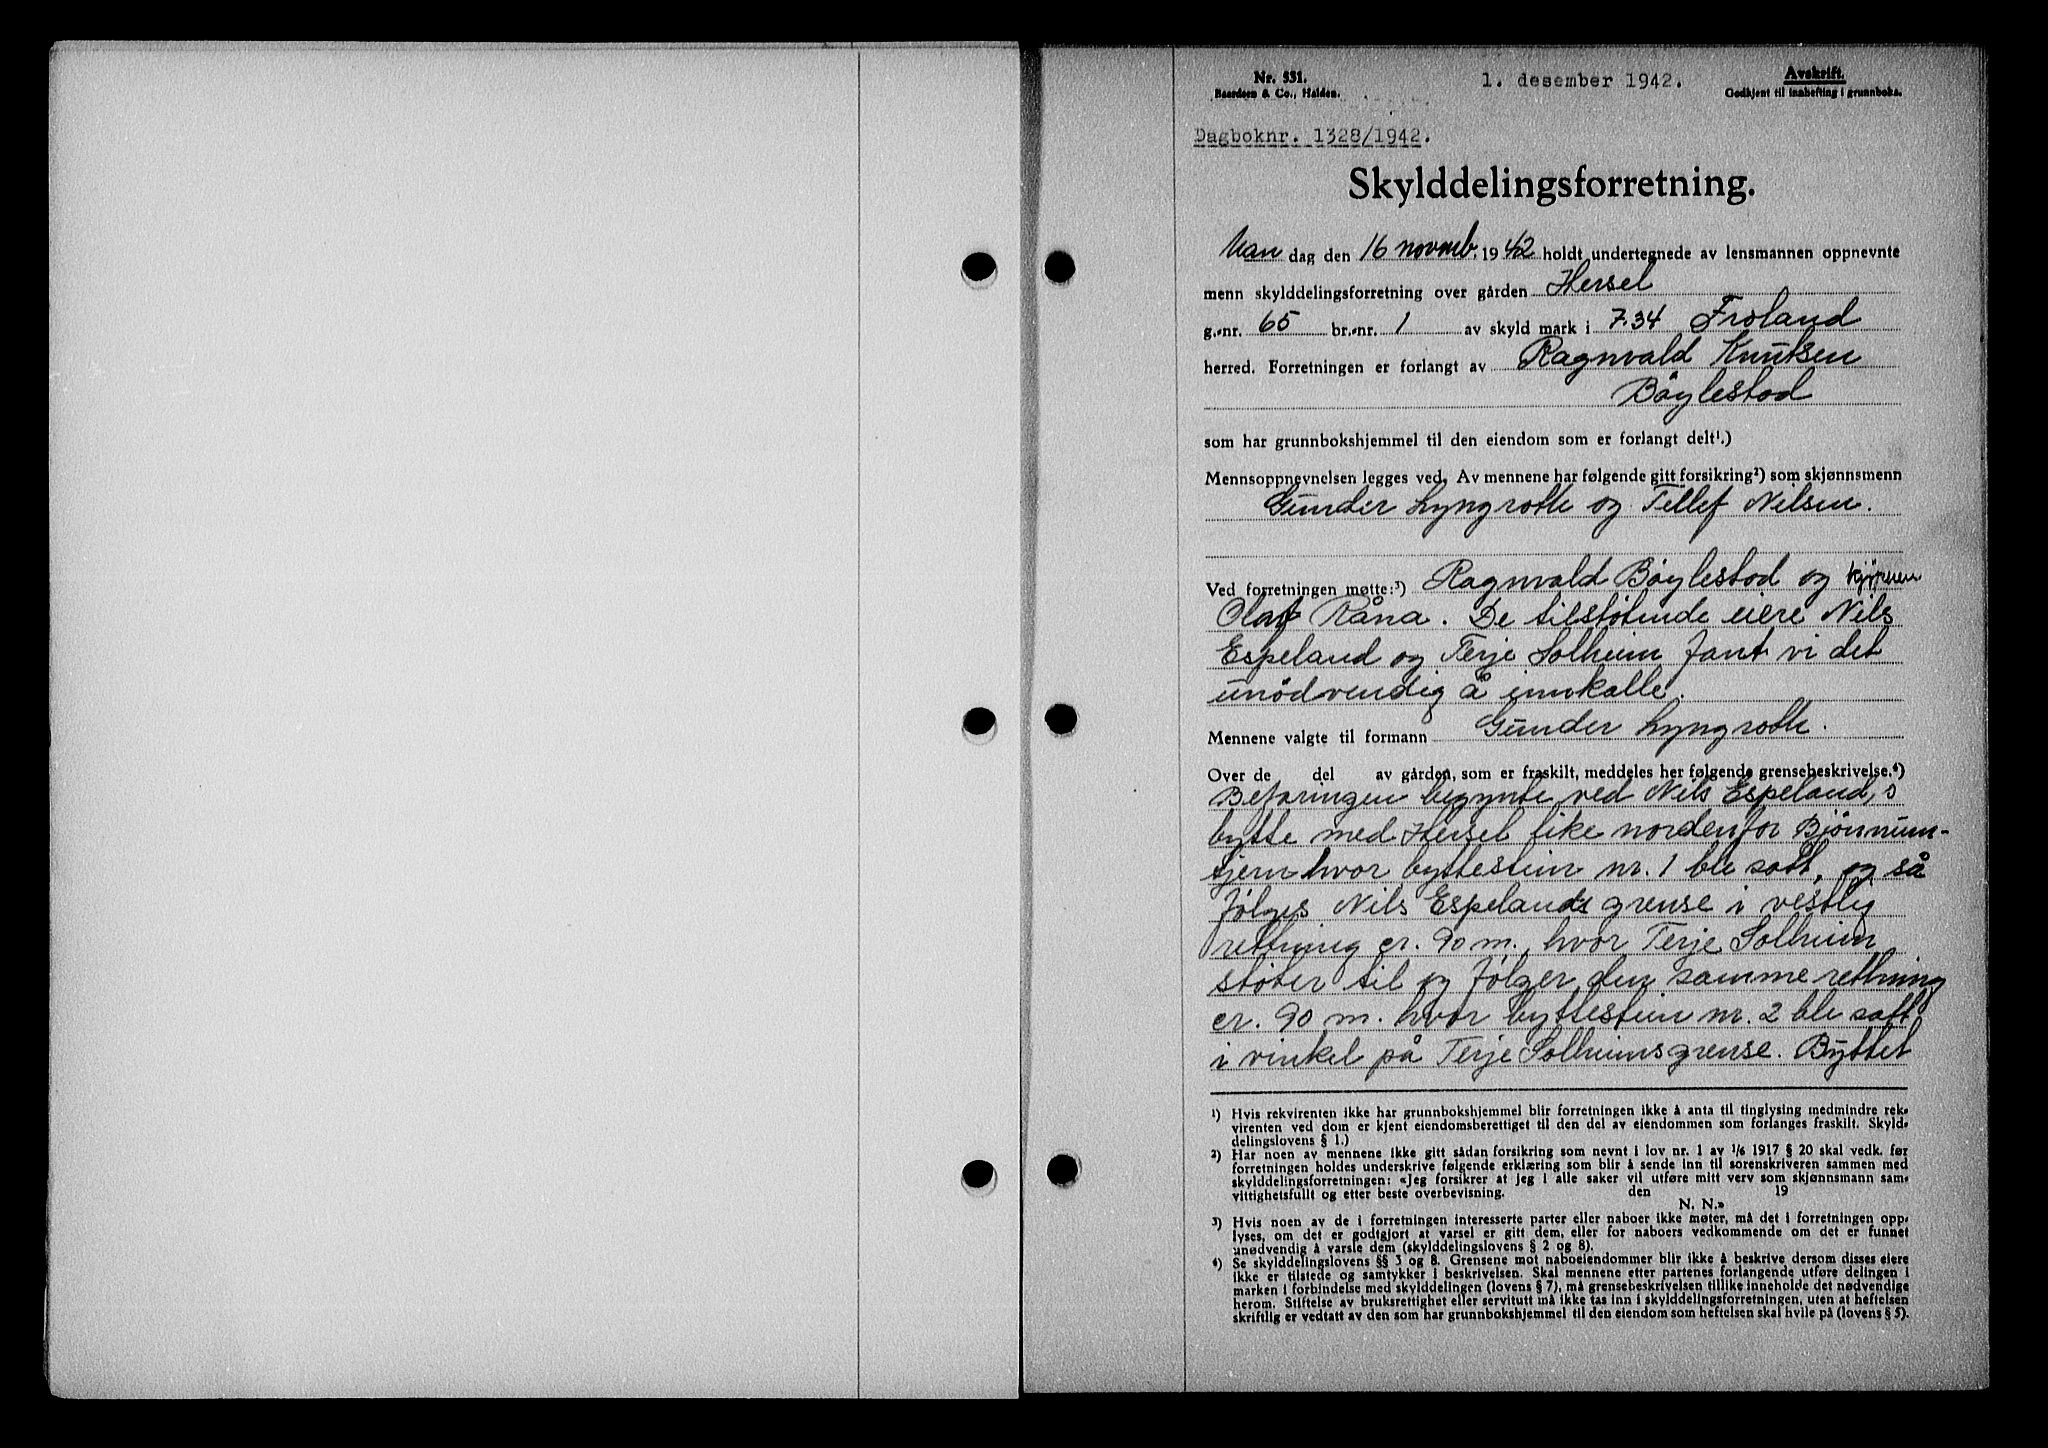 Nr. 531.
Baardsen & Co., Halden.
1. desember 1942.
Avskrift.
Godkjent til innhefting i grunnboka.
Dagboknr. 1328/1942.
Skylddelingsforretning.
Man dag den 16 novmb. 1942 holdt undertegnede av lensmannen oppnevnte
menn skylddelingsforretning over gården Hersel
g.-nr. 65 br.-nr. 1 av skyld mark i 7.34 Froland
herred. Forretningen er forlangt av Ragnvald Knutsen
Bøylestad
som har grunnbokshjemmel til den eiendom som er forlangt delt¹.)
Mennsoppnevnelsen legges ved. Av mennene har følgende gitt forsikring²) som skjønnsmenn
Gunder Lyngroth og Tellef Nilsen.
Ved forretningen møtte:³) Ragnvald Bøylestad og kjøperen
Olaf Råna. De tilstøtende eiere Nils
Espeland og Terje Solheim fant vi det
unødvendig å innkalle.
Mennene valgte til formann Gunder Lyngroth.
Over de del av gården, som er fraskilt, meddeles her følgende grensebeskrivelse.⁴)
Befaringen begynte ved Nils Espeland,s
bytte med Hersel like nordenfor Bjønnum-
tjern hvor byttestein nr. 1 ble satt, og så
følges Nils Espelands grense i vestlig
rettning cr. 90 m. hvor Terje Solheim
støter til og følger den samme rettning
cr. 90 m. hvor byttestein nr. 2 ble satt
i vinkel på Terje Solheims grense. Byttet
¹) Hvis rekvirenten ikke har grunnbokshjemmel blir forretningen ikke å anta til tinglysing medmindre rek-
virenten ved dom er kjent eiendomsberettiget til den del av eiendommen som forlanges fraskilt. Skyld-
delingslovens § 1.)
²) Har noen av mennene ikke gitt sådan forsikring som nevnt i lov nr. 1 av 1/6 1917 § 20 skal vedk. før
forretningen holdes underskrive følgende erklæring som blir å sende inn til sorenskriveren sammen med
skylddelingsforretningen: «Jeg forsikrer at jeg i alle saker vil utføre mitt verv som skjønnsmann sam-
vittighetsfullt og etter beste overbevisning. den 19
N. N.»
³) Hvis noen av de i forretningen interesserte parter eller naboer ikke møter, må det i forretningen opp-
lyses, om det er godtgjort at varsel er gitt dem, eller for naboers vedkommende om det er funnet
unødvendig å varsle dem (skylddelingslovens § 2 og 8).
⁴) Se skylddelingslovens §§ 3 og 8. Grensene mot naboeiendommer blir ikke å beskrive dersom disses eiere
ikke er tilstede og samtykker i beskrivelsen. Skal mennene etter partenes forlangende utføre delingen i
marken i forbindelse med skylddelingen (lovens § 7), må grensebeskrivelsen tillike inneholde det nødvendige
herom. Stiftelse av bruksrettighet eller servitutt må ikke tas inn i skylddelingsforretningen, uten at heftelsen
skriftlig er vedtatt av den som har grunnbokshjemmel til den eiendom som heftelsen skal hvile på (lovens § 5).